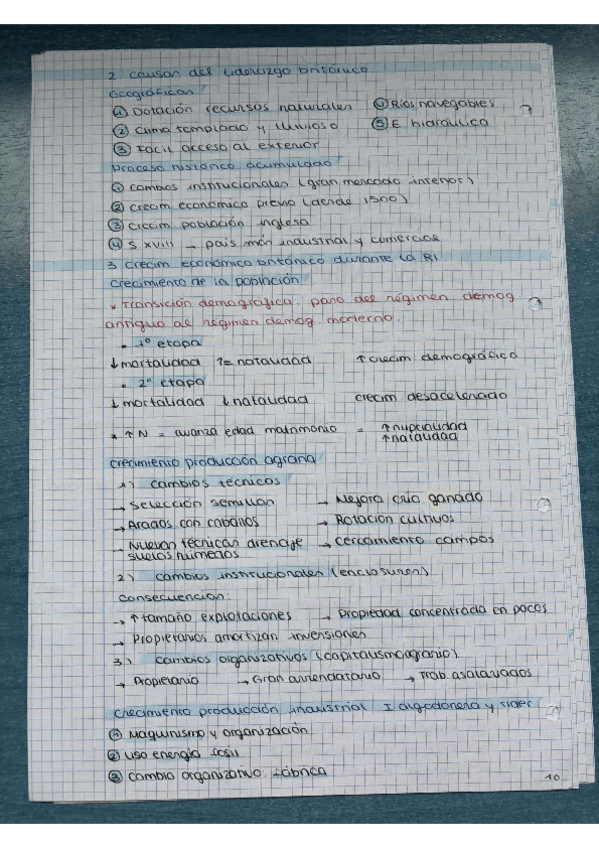 2 causas del liderazgo británico
Geográficas
① Dotación recursos naturales ④ Ríos navegables
② Clima templado y lluvioso ⑤ E hidráulica
③ Fácil acceso al exterior
Proceso histórico acumulado
① cambios institucionales (gran mercado interior)
② crecim económico previo (desde 1500)
③ crecim población inglesa
④ S XVIII → país más industrial y comercial
3 crecim económico británico durante la RI
crecimiento de la población
* Transición demográfica. paso del régimen demog
antiguo al régimen demog moderno.
• 1º etapa
↓ mortalidad ?= natalidad ↑ crecim demográfico
• 2º etapa
↓ mortalidad ↓ natalidad crecim desacelerado
* ↑ N = avanza edad matrimonio = ↑ nupcialidad
↑ natalidad
crecimiento producción agraria
1) cambios técnicos
→ selección semillas → Mejora cría ganado
→ Arados con caballos → Rotación cultivos
→ Nuevas técnicas drenaje → cercamiento campos
suelos húmedos
2) cambios institucionales (enclosures)
consecuencias:
→ ↑ tamaño explotaciones → Propiedad concentrada en pocos
→ Propietarios amortizan inversiones
3) cambios organizativos (capitalismo agrario)
→ Propietario → Gran arrendatario → Trab asalariados
crecimiento producción industrial I algodonera y sider
① Maquinismo y organización
② uso energía fósil
③ cambio organizativo: fábrica
10